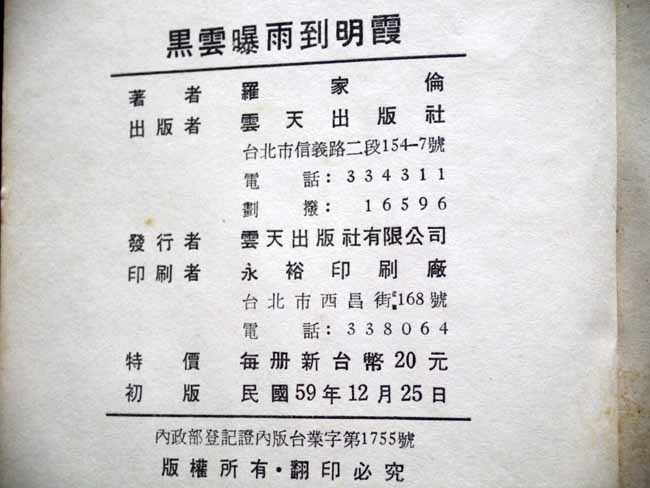 黑雲曝雨到明霞
著者 羅家倫
出版者 雲天出版社
台北市信義路二段154-7號
電話：334311
劃撥：16596
發行者 雲天出版社有限公司
印刷者 永裕印刷廠
台北市西昌街168號
電話：338064
特價 每册新台幣20元
初版 民國59年12月25日
內政部登記證內版台業字第1755號
版權所有·翻印必究